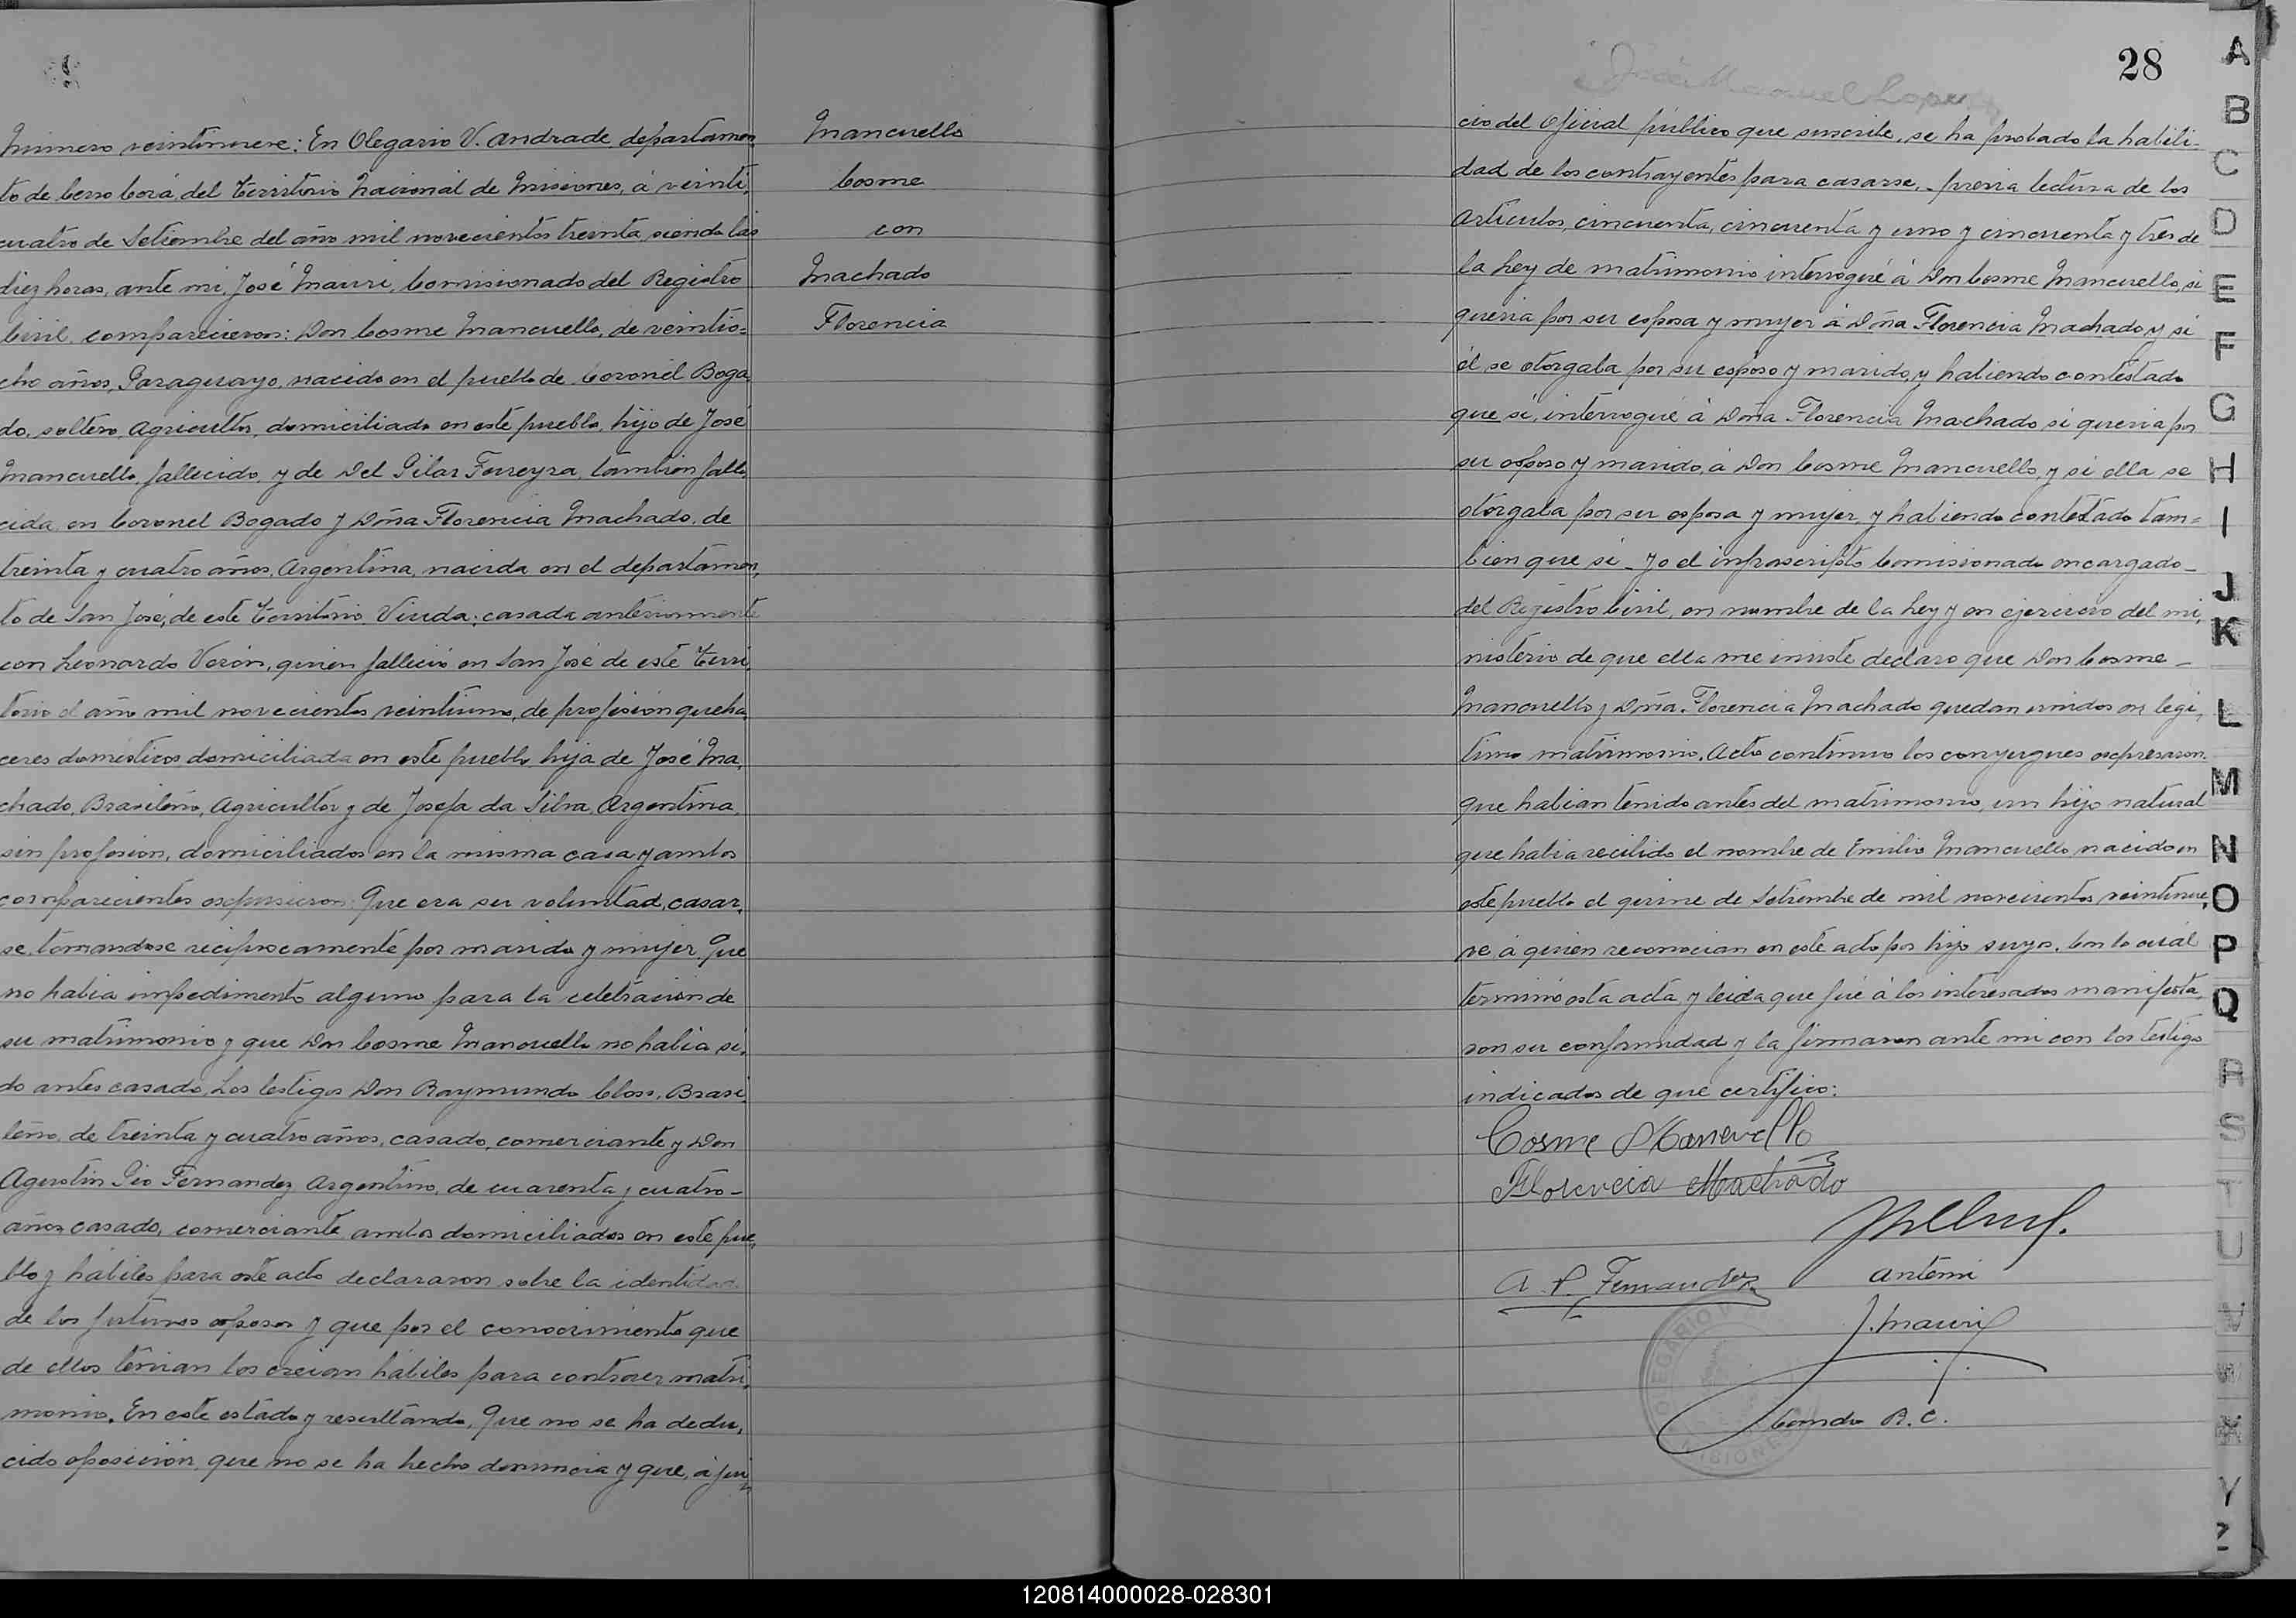 Número veintinueve: En Olegario V. Andrade departamen,
to de Cerro Corá, del Territorio Nacional de Misiones, á veinti,
cuatro de Setiembre del año mil novecientos treinta, siendo las
diez horas, ante mi, José Mauri, Comisionado del Registro
Civil, comparecieron: Don Cosme Mancuello, de veintio=
cho años, Paraguayo, nacido en el pueblo de Coronel Boga,
do, soltero, agricultor, domiciliado en este pueblo, hijo de José
Mancuello, fallecido, y de Del Pilar Ferreyra, tambien falle,
cida en Coronel Bogado y Dña Florencia Machado, de
treinta y cuatro años, Argentina, nacida en el departamen,
to de San José, de este Territorio, Viuda; casada anteriormente
con Leonardo Verón, quien falleció en San José de este Terri,
torio el año mil novecientos veintiuno, de profesión queha,
ceres domésticos domiciliada en este pueblo, hija de José Ma,
chado, Brasileño, Agricultor y de Josefa da Silva, Argentina,
sin profesion, domiciliados en la misma casa y ambos
comparecientes expusieron: Que era su voluntad, casar,
se, tomandose reciprocamente por marido y mujer. Que
no habia impedimento alguno para la celebración de
su matrimonio y que Don Cosme Mancuello no habia si,
do antes casado. Los testigos Don Raymundo Closs, Brasi,
leño, de treinta y cuatro años, casado, comerciante y Don
Agustín Pio Fernandez, Argentino, de cuarenta y cuatro-
años, casado, comerciante, ambos domiciliados en este pue,
blo y hábiles para este acto declararon sobre la identidad
de los futuros esposos y que por el conocimiento que
de ellos tenian los creian hábiles para contraer matri,
monio. En este estado y resultando, Que no se ha dedu,
cido oposición, que no se ha hecho denuncia y que, á jui,
Mancuello
Cosme
con
Machado
Florencia
José Manuel Lopez
28
cio del Oficial público que suscribe, se ha probado la habili-
dad de los contrayentes para casarse, previa lectura de los
articulos, cincuenta, cincuenta y uno y cincuenta y tres de
la Ley de matrimonio interrogué á Don Cosme Mancuello, si
queria por su esposa y mujer á Dña Florencia Machado y si
él se otorgaba por su esposo y marido, y habiendo contestado
que si, interrogué á Dña Florencia Machado si queria por
su esposo y marido, á Don Cosme Mancuello, y si ella se
otorgaba por su esposa y mujer y habiendo contestado tam=
bien que si - Yo el infrascripto Comisionado encargado-
del Registro Civil, en nombre de la Ley y en ejercicio del mi,
nisterio de que ella me inviste declaro que Don Cosme -
Mancuello y Dña. Florencia Machado quedan unidos en legi,
timo matrimonio. Acto continuo los conyugues expresaron
que habian tenido antes del matrimonio, un hijo natural
que habia recibido el nombre de Emilio Mancuello nacido en
este pueblo el quince de Setiembre de mil novecientos veintinue,
ve, á quien reconocian en este acto por hijo suyo. Con lo cuál
terminó esta acta y leida que fué á los interesados manifesta,
ron su conformidad y la firmaron ante mi con los testigos
indicados de que certifico:
Cosme Mancuello
Florencia Machado
A. P. Fernandez
Ante mi
J. Mauri
Comdo R. C.
A
B
C
D
E
F
G
H
I
J
K
L
M
N
O
P
Q
R
S
T
U
V
W
X
Y
Z
120814000028-028301